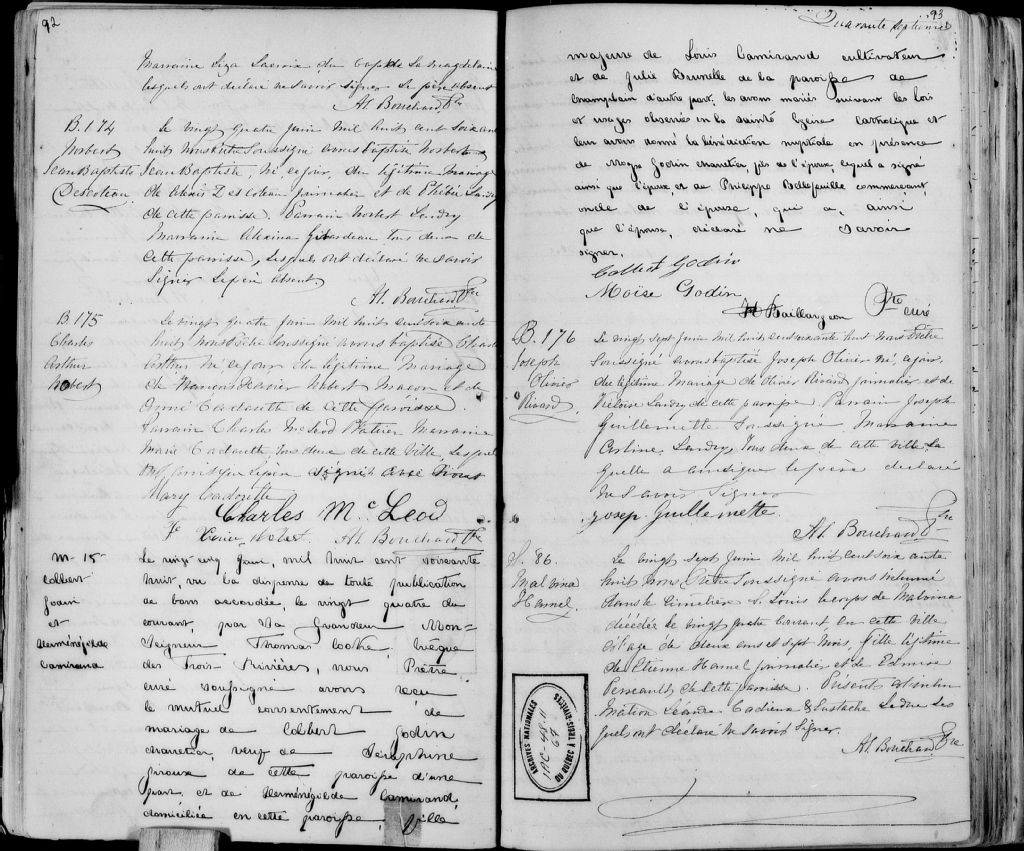 92
Marraine Liza Lacroix du Cap de la Magdelaine
lesquels ont déclaré ne savoir signer le père absent
At. Bouchard Ptre
B. 174
Norbert
Jean Baptiste
Le vingt quatre Juin mil huit cent soixante
huit nous Prêtre soussigné avons baptisé Norbert
Jean Baptiste, né ce jour, du légitime mariage
de Alexis journalier et de Landry
de cette paroisse. Parrain Norbert Landry
Marraine Alexina tous deux de
cette paroisse, lesquels ont déclaré ne savoir
signer le père absent
At. Bouchard Ptre
B. 175
Charles
Arthur
Hebert
Le vingt quatre Juin mil huit cent soixante
huit nous Prêtre soussigné avons baptisé Charles
Arthur né ce jour du légitime mariage
de François Xavier Hebert Macon et de
Anné Cadorette de cette paroisse.
Parrain Charles McLeod Marraine
Marie Cadorette tous deux de cette ville, lesquels
ont ainsi que le père signé avec nous
Mary Cadorette
Charles McLeod
F Xavier Hebert. At. Bouchard Ptre
M- 15
Colbert
Godin
et
Herménégilde
Camirand
Le vingt cinq Juin, mil huit cent soixante
huit, vu la dispense de toute publication
de bans accordée, le vingt quatre du
courant, par Sa Grandeur Mon-
seigneur Thomas Cooke, Evêque
des Trois-Rivières, nous Prêtre
curé soussigné avons reçu
le mutuel consentement de
mariage de Colbert Godin
charretier, veuf de Séraphine
Giroux de cette paroisse d'une
part, et de Herménégilde Camirand,
domiciliée en cette paroisse, fille
93
Quarante septième
majeure de Louis Camirand cultivateur
et de Julie Brunelle de la paroisse de
Champlain d'autre part, les avons mariés suivant les lois
et usages observés en la Sainte Eglise Catholique et
leur avons donné la bénédiction nuptiale en présence
de Moyse Godin charretier, père de l'époux, lequel a signé
ainsi que l'époux et de Philippe Bellefeuille commerçant,
oncle de l'épouse, qui a, ainsi
que l'épouse, déclaré ne savoir
signer.
Colbert Godin
Moïse Godin
Baillargeon Ptre curé
B. 176
Joseph
Olivier
Rivard
Le vingt sept Juin mil huit cent soixante huit nous Prêtre
soussigné avons baptisé Joseph Olivier né, ce jour,
du légitime mariage de Olivier Rivard journalier et de
Héloïse Landry de cette paroisse. Parrain Joseph
Guillemette soussigné Marraine
Landry tous deux de cette ville la
quelle a ainsi que le père déclaré
ne savoir signer
Josep. Guillemette.
At. Bouchard Ptre
S. 86.
Malvina
Hamel
Le vingt sept Juin mil huit cent soixante
huit nous Prêtre soussigné avons inhumé
dans le cimetière S. Louis le corps de Malvina
décédée le vingt quatre courant en cette ville
à l'age de deux ans et sept mois, fille légitime
de Etienne Hamel journalier et de Edmire
Perreault de cette paroisse. Présents à l'inhu-
mation Léandre Cadieux & Eustache Leduc les
quels ont déclaré ne savoir signer.
At. Bouchard Ptre
ARCHIVES NATIONALES
DU QUÉBEC À TROIS-RIVIÈRES